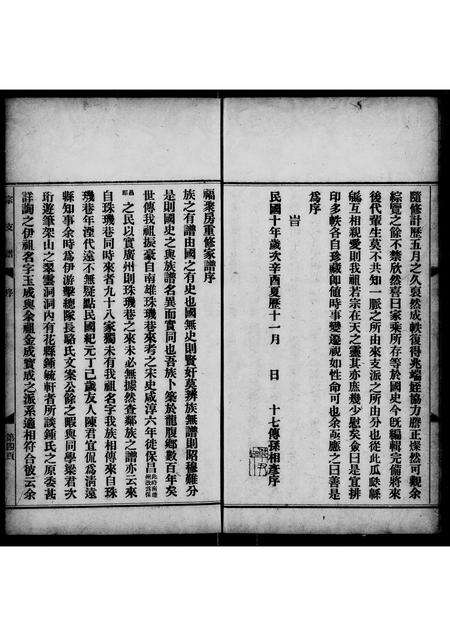 隨修計歷五月之久裒然成帙復得兆端姪協力磨正燦然可觀余
綜覽之餘不禁欣然喜曰家乘所存等於國史今旣編輯完備將來
後代輩生莫不共知一脈之所由來支派之所由分也從此瓜瓞緜
緜互相親愛則我祖若宗在天之靈其亦庶幾少慰矣僉曰是宜排
印多帙各自珍藏卽値時事變遷視如性命可也余亟應之曰善是
爲序
旹
民國十年歲次辛酉夏歷十一月　日　十七傳孫相彥序
福業房重修家譜序
族之有譜由國之有史也國無史則賢奸莫辨族無譜則昭穆難分
是則國史之與族譜名異而實同也吾族卜築於龍腹鄉數百年矣
世傳我祖振豪自南雄珠璣巷來考之宋史咸淳六年徙保昌
昌之民以實廣州則珠璣巷之來未必無據然查鄰族之譜亦云來
自珠璣巷同時來者九十八家獨未有我祖名字我族相傳來自珠
璣巷年湮代遠不無疑點民國紀元丁己歲友人陳君宜侃爲淸遠
縣知事余時爲伊游擊總隊長駱氏文案公餘之暇與同學梁君次
珩遊筆架山之翠雲洞洞內有花縣鍾毓軒者所談鍾氏之原委甚
詳詢之伊祖名字玉成與余祖金成寶成之派系適相符合彼云余
宗支譜
序
第四頁